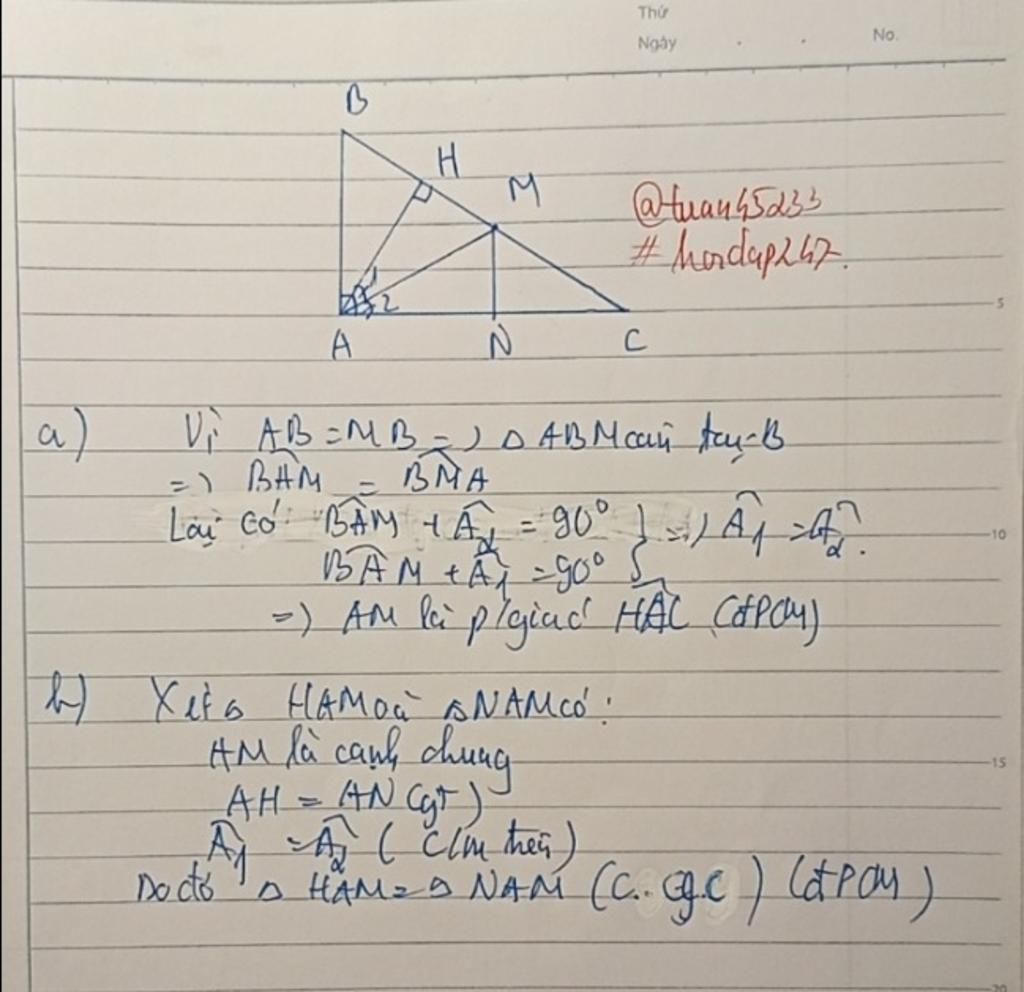 Thứ
Ngày . . No.
B
H
M
@tuan45233
#hoidap247.
1
2
A N C
5
a) Vì AB = MB => △ ABM cân tại B
=> BAM = BMA
Lại có: BAM + A2 = 90° } => A1 = A2.
10
BAM + A1 = 90°
=> AM là p/giác HAC (đPCM)
b) Xét △ HAM và △ NAM có:
AM là cạnh chung
15
AH = AN (gt)
A1 = A2 (C/m trên)
Do đó △ HAM = △ NAM (C.g.C) (đPCM)
20